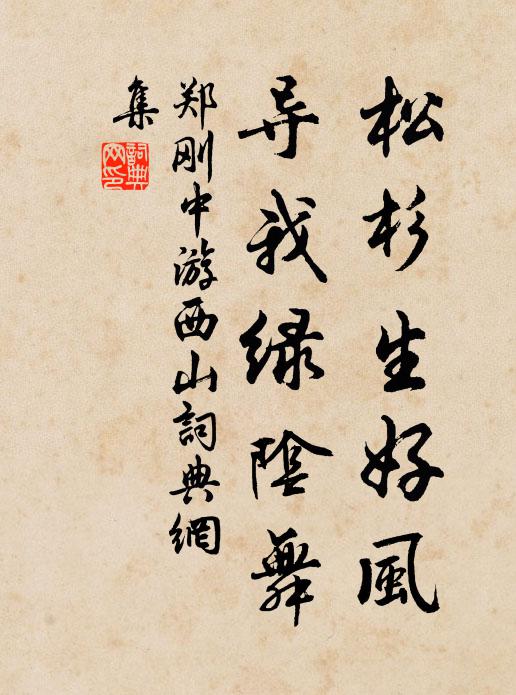 松杉生好風
导我绿陰舞
郑刚中游西山詞典網
集
詞典
网印